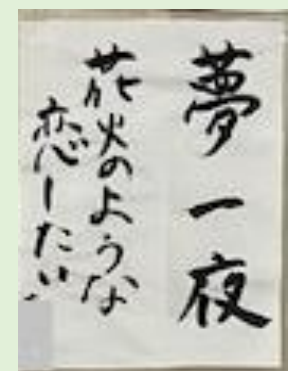 夢一夜
花火のような
恋したい